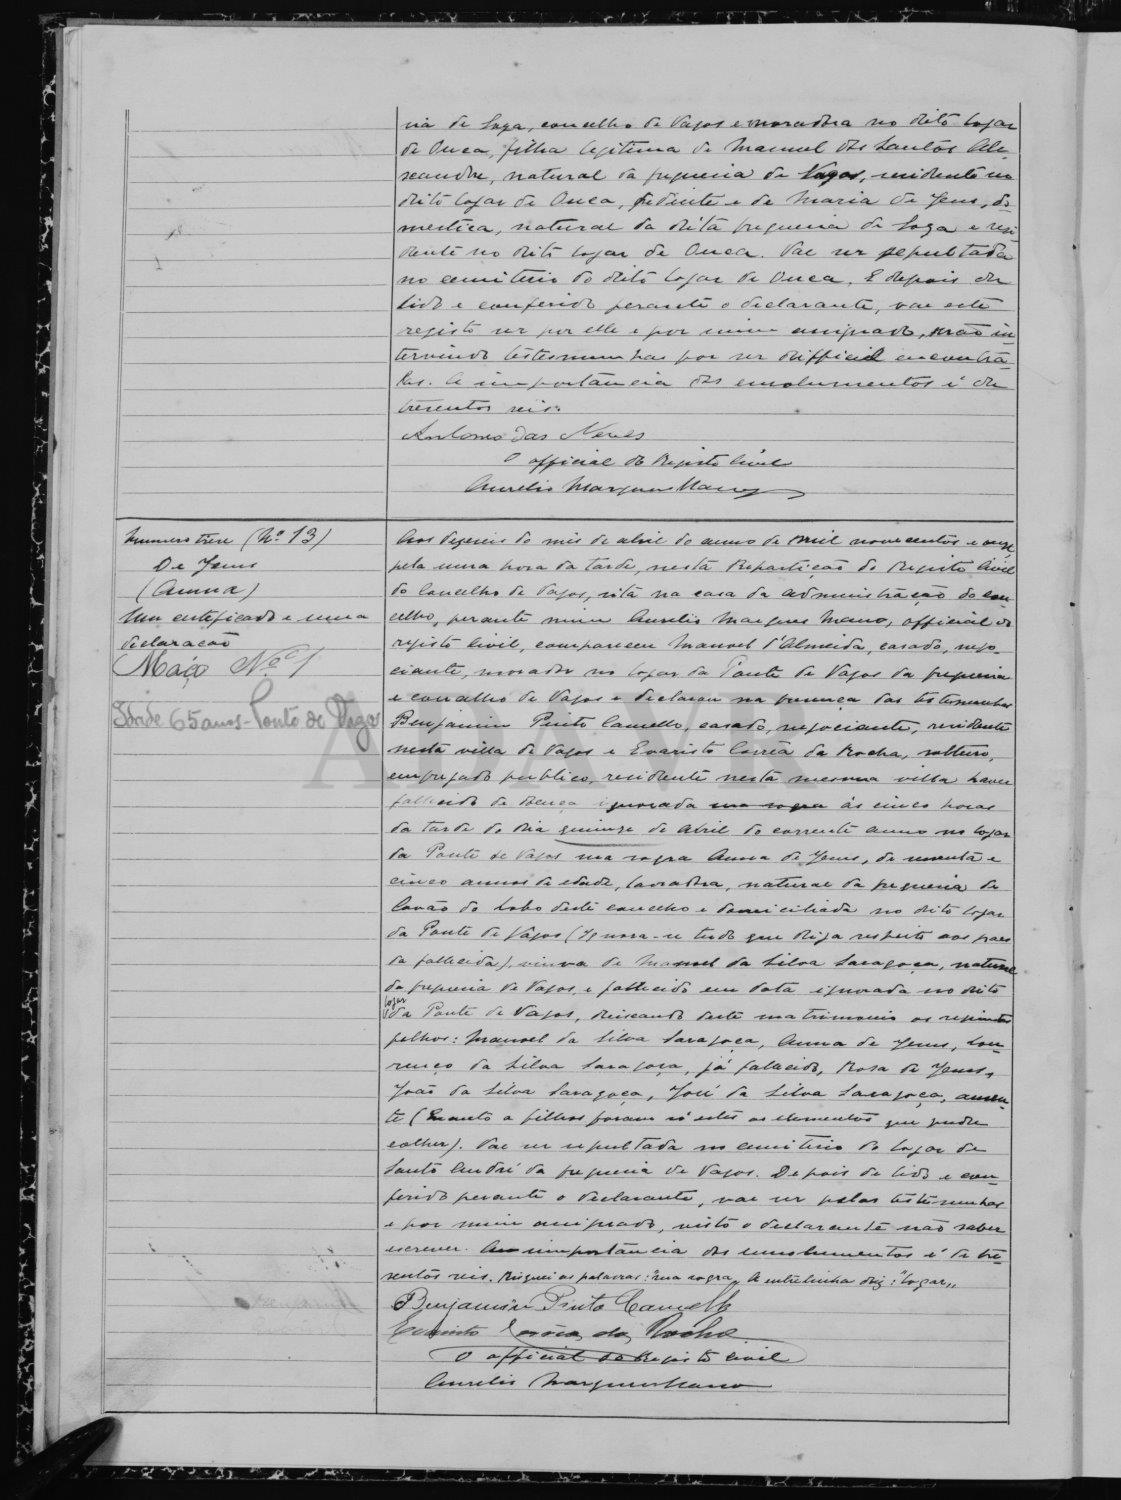 ria de Soza, concelho de Vagos e moradora no dito logar
de Ouca, filha legitima de Manuel dos Santos Ale-
xandre, natural da freguesia de Vagos, residente no
dito logar de Ouca, e de Maria de Jesus, do-
mestica, natural da dita freguesia de Soza e resi-
dente no dito logar de Ouca. Vae ser sepultada
no cemiterio do dito logar de Ouca. E depois de
lido e conferido perante o declarante, vae este
registo ser por elle e por mim assignado, não in-
tervindo testesmunhas por ser difficil encontrá-
las. A importância dos emolumentos é de
tresentos reis.
Antonio das Neves
O official do Registo Civil
Aurelio Marques Mano
Numero treze (Nº 13)
De Jesus
(Anna)
Um certificado e uma
declaração
Maço Nº 1
Idade 65 anos - Ponte de Vagos
Aos deseseis do mês de abril do anno de mil novecentos e onze
pela uma hora da tarde, nesta Repartição do Registo Civil
do Concelho de Vagos, sita na casa da administração do con-
celho, perante mim Aurelio Marques Mano, official do
registo civil, compareceu Manuel d'Almeida, casado, nego-
ciante, morador no logar da Ponte de Vagos da freguesia
e concelho de Vagos e declarou na presença das testemunhas
Benjamin Pinto Camello, casado, negociante, residente
nesta villa de Vagos e Evaristo Corrêa da Rocha, solteiro,
empregado publico, residente nesta mesma villa haver
fallecido de doença ignorada sua sogra ás cinco horas
da tarde do dia quinze de Abril do corrente anno no logar
da Ponte de Vagos sua sogra Anna de Jesus, de sessenta e
cinco annos de edade, lavradora, natural da freguesia de
Covão do Lobo deste concelho e domiciliada no dito logar
da Ponte de Vagos (Ignora-se tudo que diga respeito aos paes
da fallecida), viuva de Manuel da Silva Saragoça, natural
da freguesia de Vagos, e fallecido em data ignorada no dito
logar
da Ponte de Vagos, deixando deste matrimonio os seguintes
filhos: Manoel da Silva Saragoça, Anna de Jesus, Lou-
renço da Silva Saragoça, já fallecido, Rosa de Jesus,
João da Silva Saragoça, José da Silva Saragoça, ausen-
te (Quanto a filhos foram só estes os elementos que pude
colher). Vae ser sepultada no cemiterio do logar de
Santo André da freguesia de Vagos. Depois de lido e con-
ferido perante o declarante, vae ser pelas testemunhas
e por mim assignado, visto o declarante não saber
escrever. A importância dos emolumentos é de tre-
sentos reis. Risquei as palavras: "sua sogra". A entrelinha diz: "logar"
Benjamin Pinto Camello
Evaristo Corrêa da Rocha
O official do Registo Civil
Aurelio Marques Mano